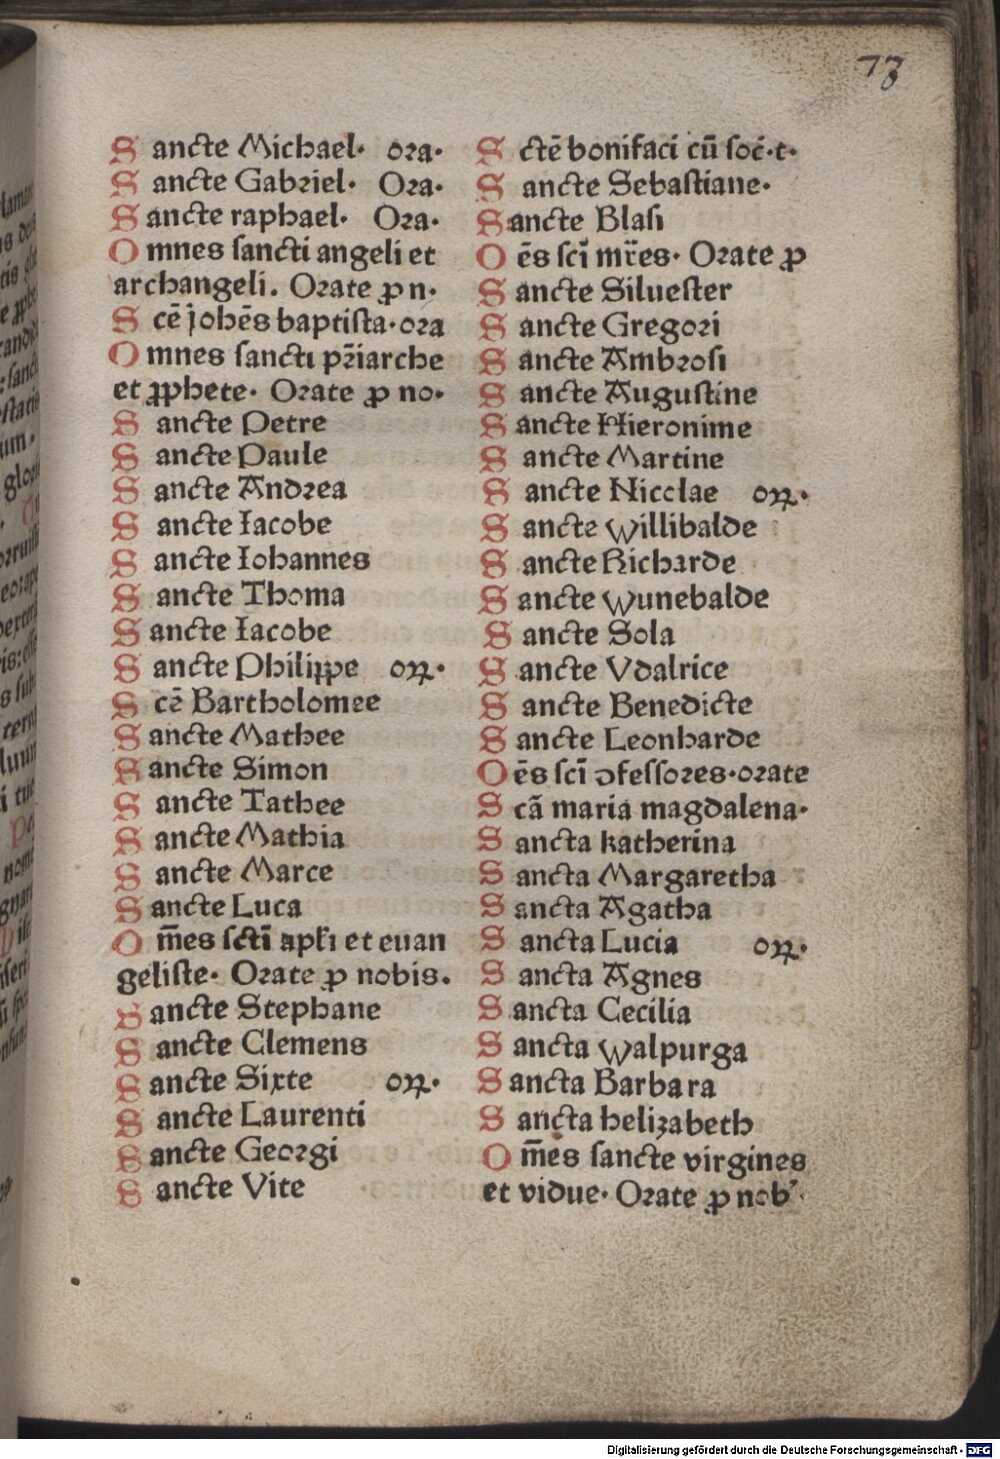 73
Sancte Michael. ora.
Sancte Gabriel. Ora.
Sancte raphael. Ora.
Omnes sancti angeli et
archangeli. Orate ꝓ n.
Scē johēs baptista. ora
Omnes sancti pr̄iarche
et ꝓphete. Orate ꝓ no.
Sancte Petre
Sancte Paule
Sancte Andrea
Sancte Iacobe
Sancte Iohannes
Sancte Thoma
Sancte Iacobe
Sancte Philippe orꝝ.
Scē Bartholomee
Sancte Mathee
Sancte Simon
Sancte Tathee
Sancte Mathia
Sancte Marce
Sancte Luca
Om̄es scti̅ apl̄i et euan
geliste. Orate ꝓ nobis.
Sancte Stephane
Sancte Clemens
Sancte Sixte orꝝ.
Sancte Laurenti
Sancte Georgi
Sancte Vite
Sctē bonifaci cū soc̄.t.
Sancte Sebastiane.
Sancte Blasi
Oēs sci̅ mr̄es. Orate ꝓ
Sancte Siluester
Sancte Gregori
Sancte Ambrosi
Sancte Augustine
Sancte Hieronime
Sancte Martine
Sancte Nicclae orꝝ.
Sancte Willibalde
Sancte Richarde
Sancte Wunebalde
Sancte Sola
Sancte Vdalrice
Sancte Benedicte
Sancte Leonharde
Oēs sci̅ ꝯfessores. orate
Scā maria magdalena.
Sancta katherina
Sancta Margaretha
Sancta Agatha
Sancta Lucia orꝝ.
Sancta Agnes
Sancta Cecilia
Sancta Walpurga
Sancta Barbara
Sancta helizabeth
Om̄es sancte virgines
et vidue. Orate ꝓ nob'.
Digitalisierung gefördert durch die Deutsche Forschungsgemeinschaft - DFG